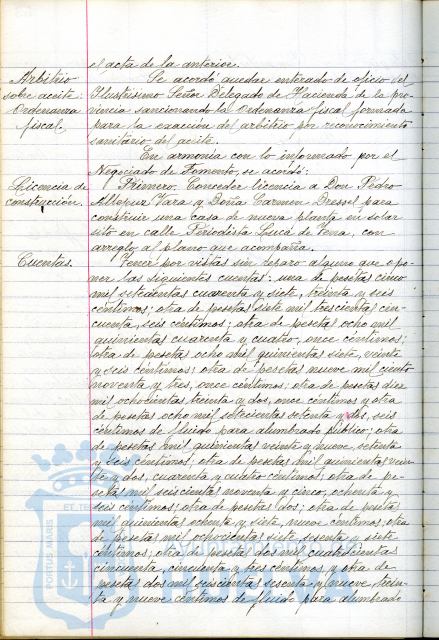 el acta de la anterior.
Arbitrio
sobre aceite:
Ordenanza
fiscal.
Se acordó quedar enterado de oficio del
Ilustrísimo Señor Delegado de Hacienda de la pro-
vincia sancionando la Ordenanza fiscal formada
para la exacción del arbitrio por reconocimiento
sanitario del aceite.
En armonía con lo informado por el
Negociado de Fomento, se acordó:
Licencia de
construcción.
Primero. Conceder licencia a Don Pedro
Vara y Doña Carmen Dressel para
construir una casa de nueva planta en solar
sito en calle Periodista Luca de Tena, con
arreglo al plano que acompaña.
Cuentas.
Tener por vistas sin reparo alguno que opo-
ner las siguientes cuentas: una de pesetas cinco
mil setecientas cuarenta y siete, treinta y seis
céntimos; otra de pesetas siete mil trescientas cin-
cuenta, seis céntimos; otra de pesetas ocho mil
quinientas cuarenta y cuatro, once céntimos;
otra de pesetas ocho mil quinientas siete, veinte
y seis céntimos; otra de pesetas nueve mil ciento
noventa y tres, once céntimos; otra de pesetas diez
mil ochocientas treinta y dos, once céntimos y otra
de pesetas ocho mil setecientas setenta y dos, seis
céntimos de fluido para alumbrado público; otra
de pesetas mil quinientas veinte y nueve, setenta
y seis céntimos; otra de pesetas mil quinientas vein-
te y dos, cuarenta y cuatro céntimos; otra de pe-
setas mil seiscientas noventa y cinco, ochenta y
seis céntimos; otra de pesetas dos; otra de pesetas
mil quinientas ochenta y siete, nueve céntimos; otra
de pesetas mil ochocientas siete, sesenta y siete
céntimos; otra de pesetas dos mil cuatrocientas
cincuenta, cincuenta y tres céntimos y otra de
pesetas dos mil seiscientas sesenta y nueve, trein-
ta y nueve céntimos de fluido para alumbrado
PORTUS MARIS
ET TE